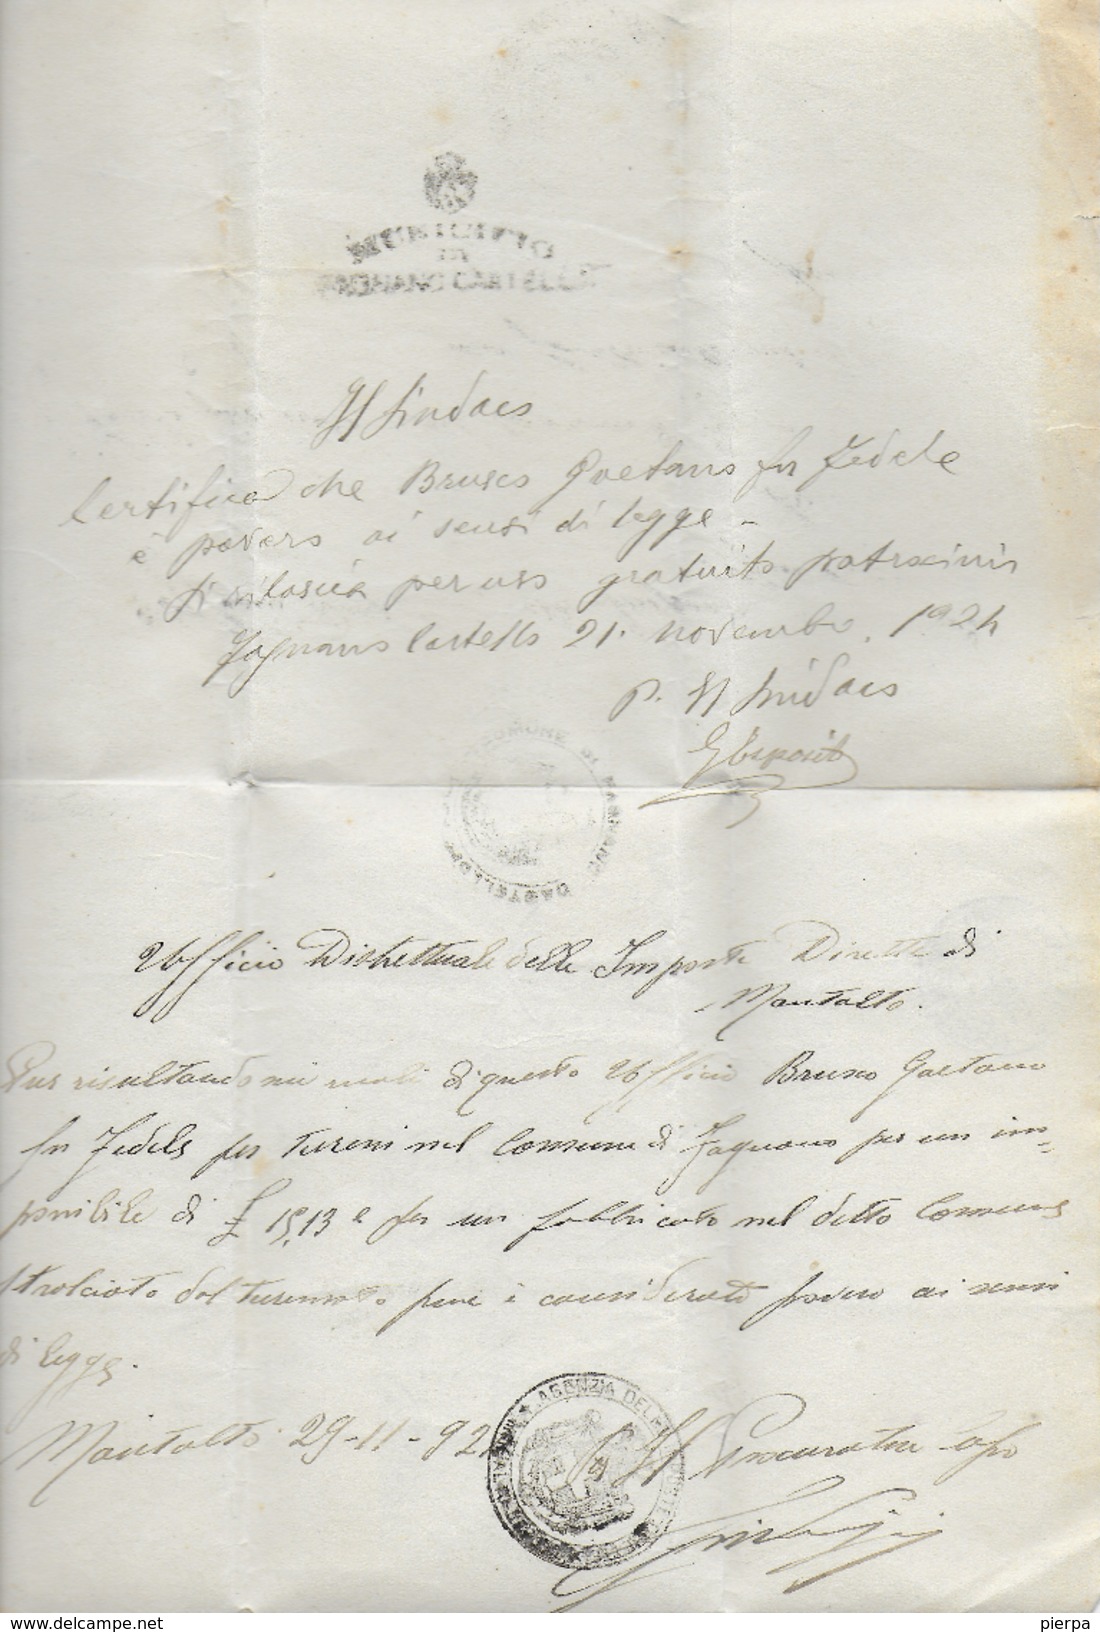 MUNICIPIO
DI
FAGNANO CASTELLO
Il Sindaco
Certifica che Brusco Gaetano fu Fedele
è povero ai sensi di legge -
Si rilascia per uso gratuito patrocinio
Fagnano Castello 21. novembre. 1924
p. Il Sindaco
GEsposito
COMUNE DI FAGNANO CASTELLO
Ufficio Distrettuale delle Imposte Dirette di
Montalto.
Pur risultando nei ruoli di questo Ufficio Brusco Gaetano
fu Fedele per terreni nel Comune di Fagnano per un im-
ponibile di £ 15,13 e per un fabbricato nel detto Comune
stralciato dal terremoto pure è considerato povero ai sensi
di legge.
Montalto 29-11-924
Il Procuratore capo
AGENZIA DELLE IMPOSTE
delcampe.net
pierpa